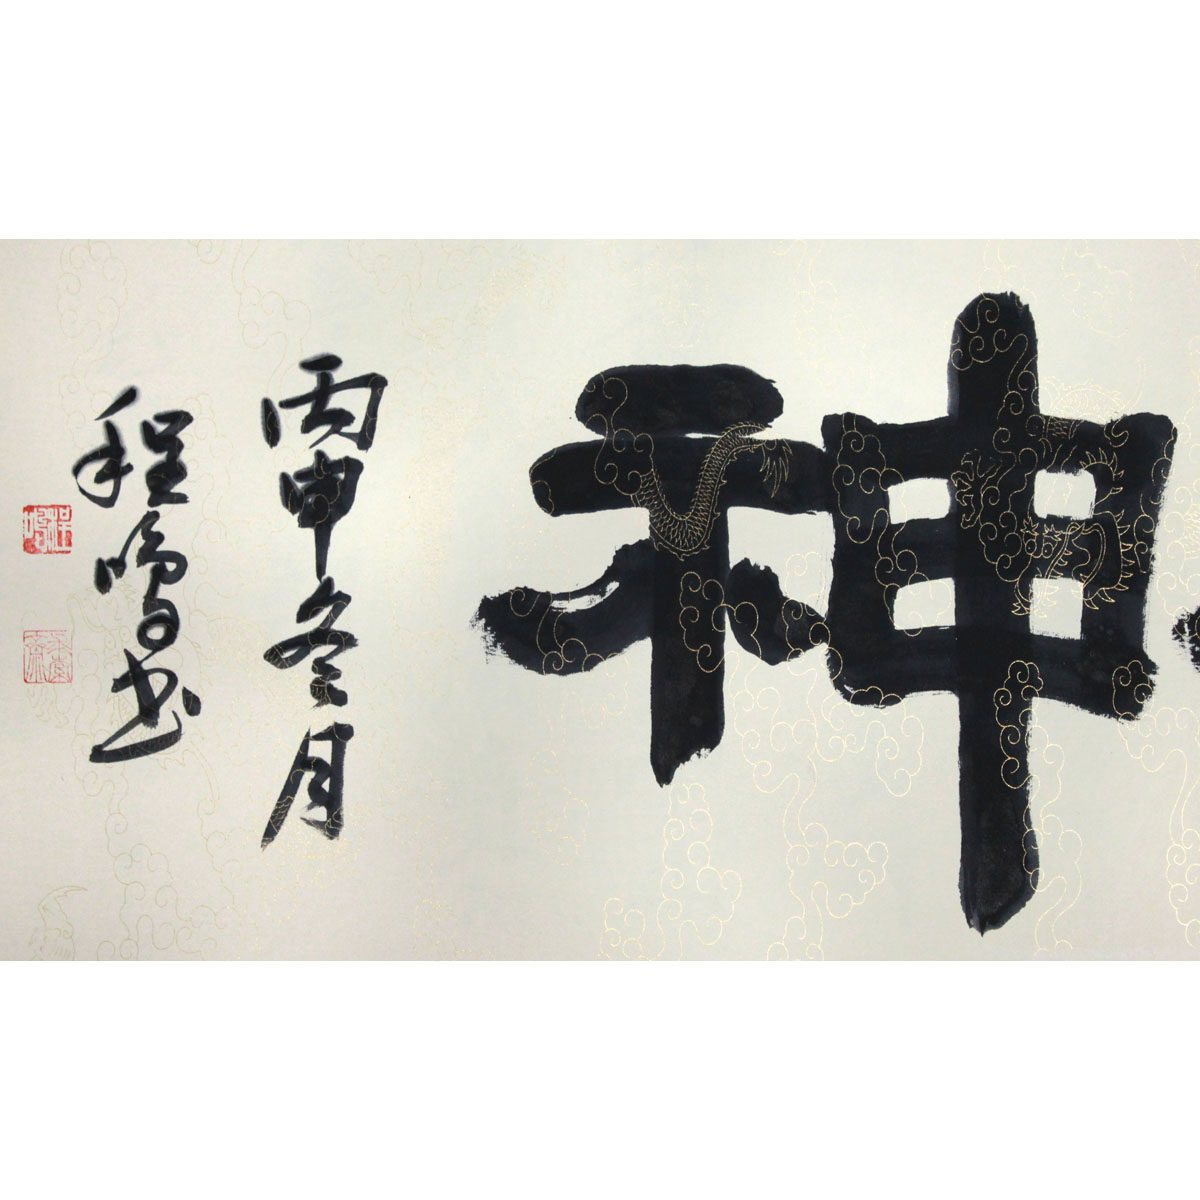 神
丙申冬月
程鸣书